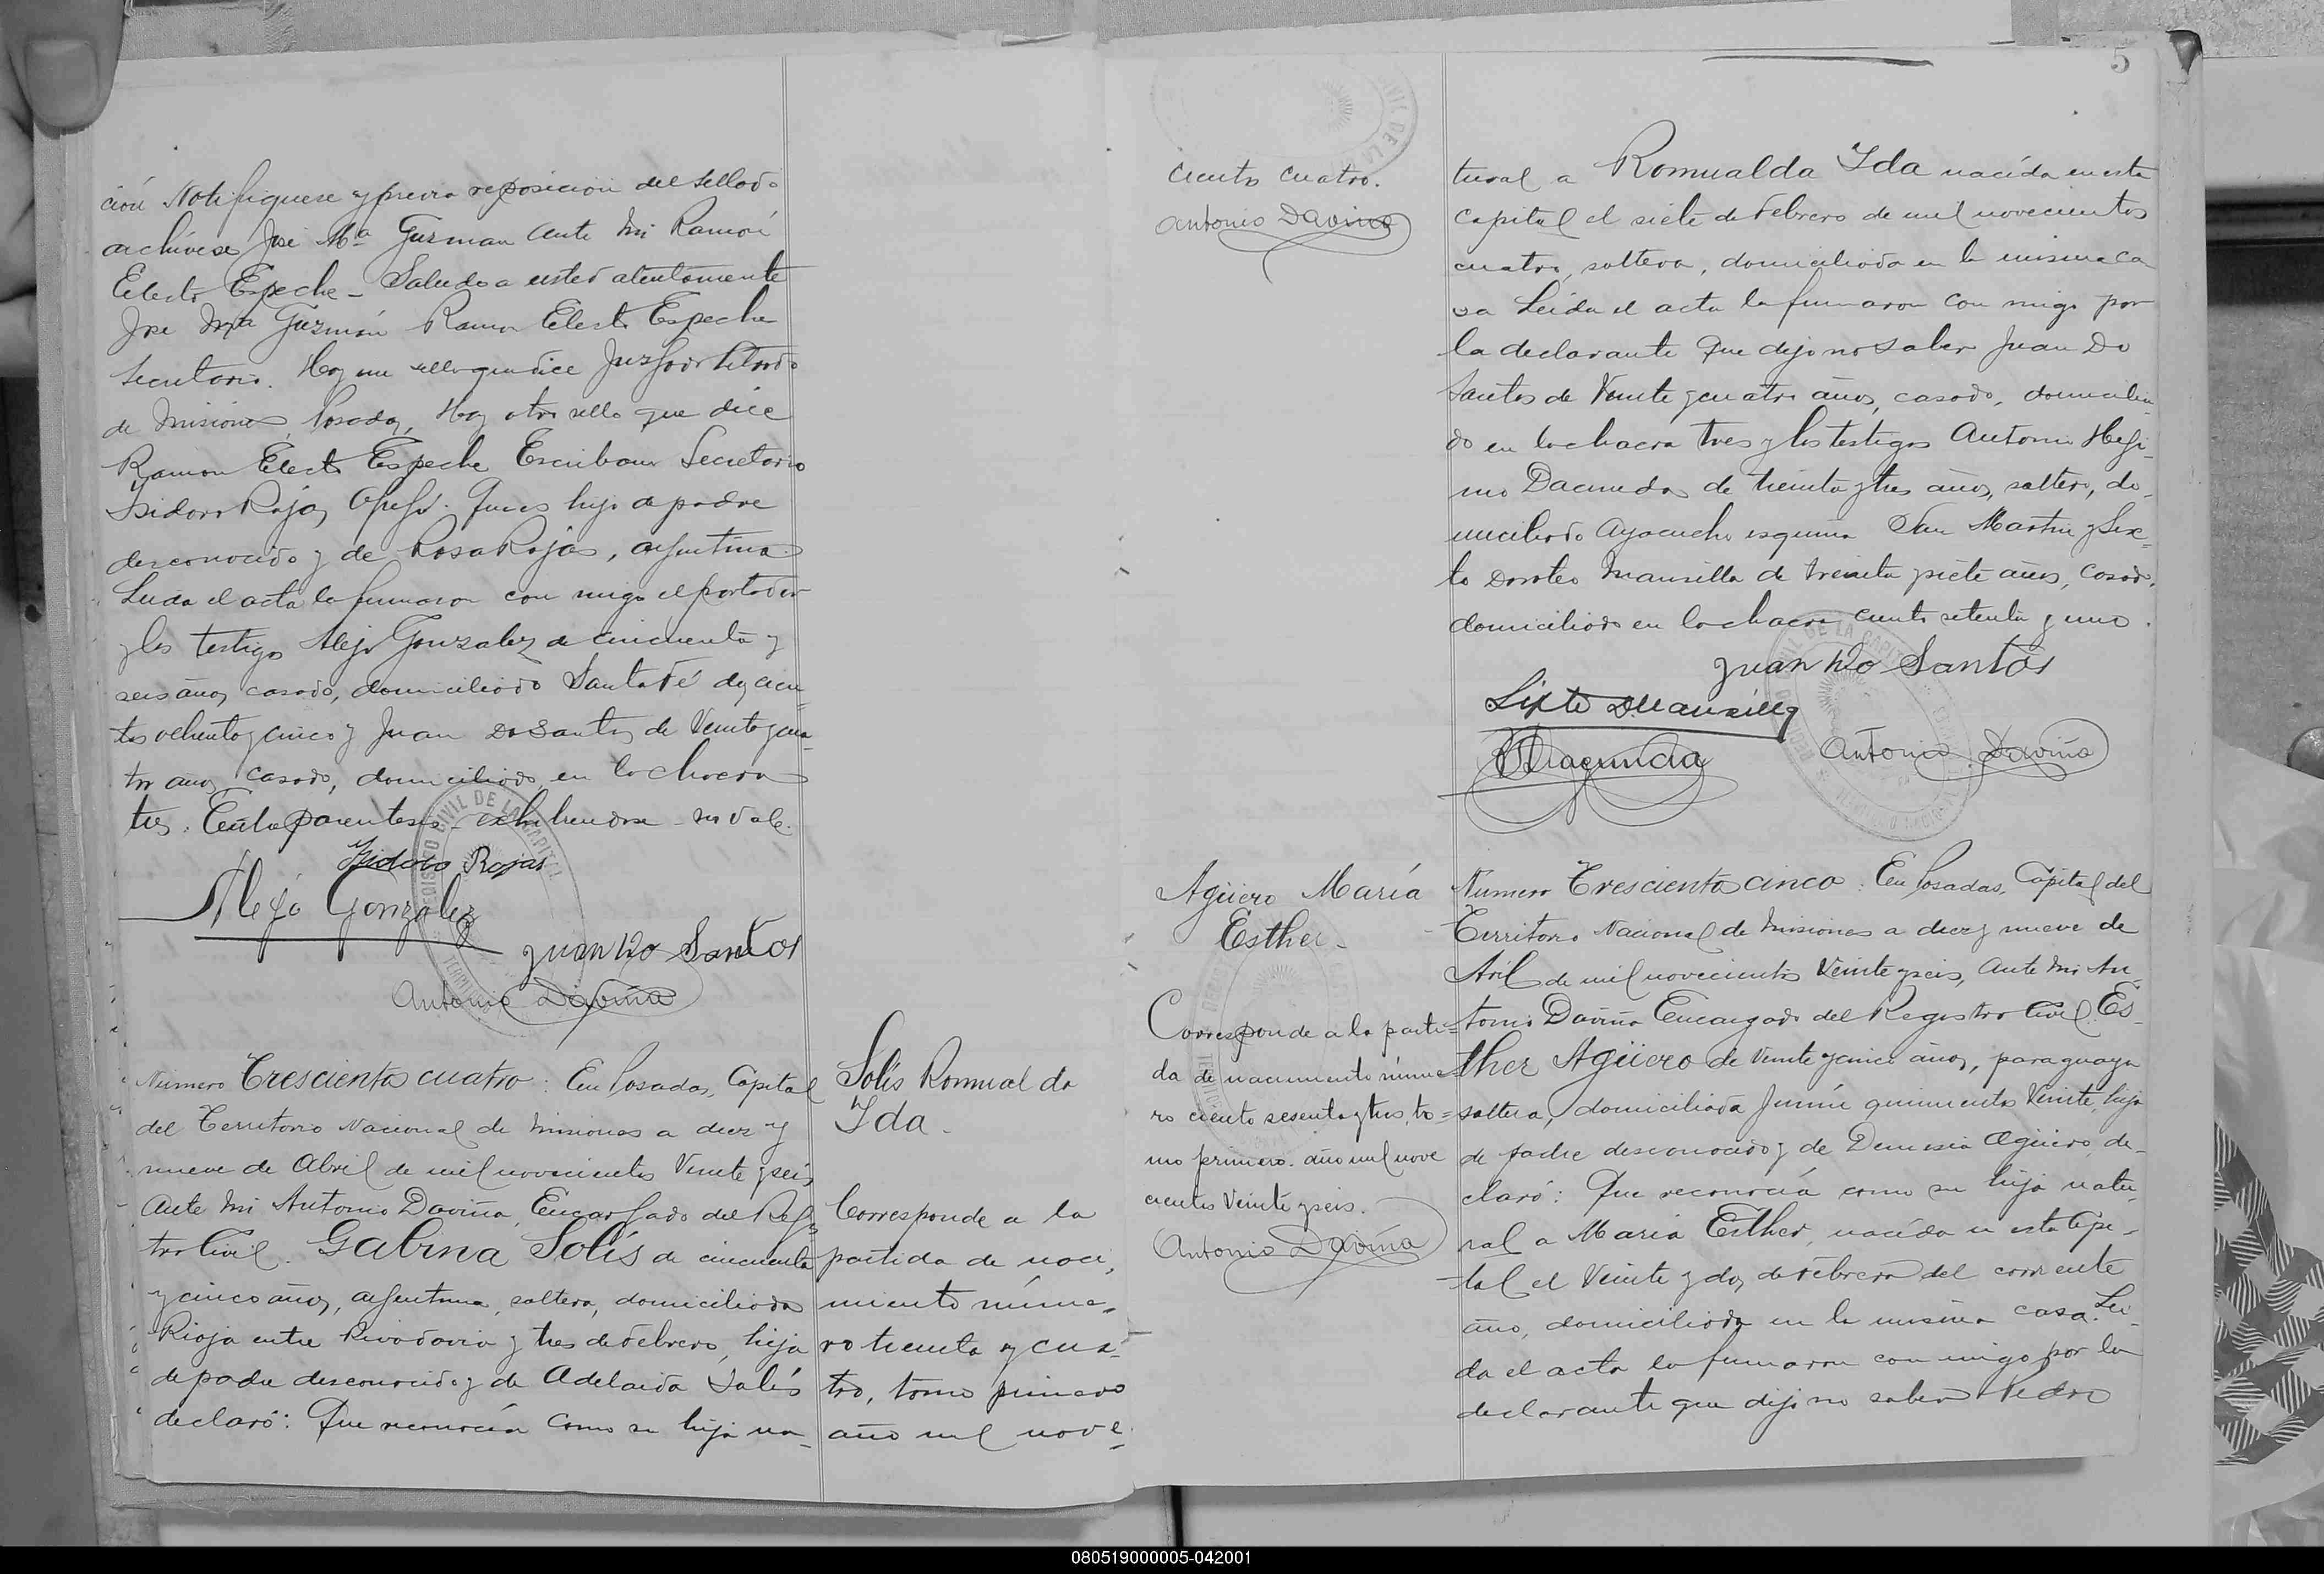 ción Notifíquese y previa reposición del sellado
archívese José Mª Guzman Ante Mi Ramón
Electo Espeche - Saludo a usted atentamente
Jose Mª Guzmán Ramon Electo Espeche
Secretario. Hay un sello que dice Juzgado Letrado
de Misiones Posadas, Hay otro sello que dice
Ramon Electo Espeche Escribano Secretario
Isidoro Rojas Que es hijo de padre
desconocido y de Rosa Rojas, argentina
Leida el acta la firmaron con migo el portador
y los testigos Alejo Gonzalez de cincuenta y
seis años, casado, domiciliado Santa Fé doscien
tos ochenta y cinco y Juan Do Santos de Veinte y cua
tro años casado, domiciliado en la chacra
tres. Entre parentesis - exhibiendose - no vale.
Isidoro Rojas
Alejo Gonzalez
Juan Do Santos
Antonio Daviña
Numero Trescientos cuatro: En Posadas, Capital
del Territorio Nacional de Misiones a diez y
nueve de Abril de mil novecientos Veinte y seis,
Ante Mi Antonio Daviña, Encargado del Regis
tro Civil. Gabina Solís de cincuenta
y cinco años, argentina, soltera, domiciliada
Rioja entre Rivadavia y tres de Febrero, hija
de padre desconocido y de Adelaida Solís
declaró: Que reconocía como su hija na-
Solís Romualda
Ida.
Corresponde a la
partida de naci,
miento núme-
ro treinta y cua-
tro, tomo primero
año mil nove-
5
ciento cuatro.
Antonio Daviña
tural a Romualda Ida nacida en esta
Capital el siete de Febrero de mil novecientos
cuatro, soltera, domiciliada en la misma ca
sa Leida el acta la firmaron con migo por
la declarante que dijo no saber Juan Do
Santos de Veinte y cuatro años, casado, domicilia-
do en la chacra tres y los testigos Antonio Higi-
no de treinta y tres años, soltero, do-
miciliado Ayacucho esquina San Martin y Six-
to Doroteo Mansilla de treinta y siete años, casado,
domiciliado en la chacra ciento setenta y uno.
Juan Do Santos
Sixto D Mansilla
Antonio Daviña
Agüero María
Esther-
Corresponde a la parti-
da de nacimiento núme
ro ciento sesenta y tres, to=
mo primero. año mil nove
cientos Veinte y seis.
Antonio Daviña
Numero Trescientos cinco: En Posadas, Capital del
Territorio Nacional de Misiones a diez y nueve de
Abril de mil novecientos Veinte y seis, Ante Mi An-
tonio Daviña Encargado del Registro Civil. Es-
ther Agüero de Veinte y cinco años, paraguaya
soltera, domiciliada Junín quinientos Veinte, hija
de padre desconocido y de Agüero, de-
claró: Que reconocía como su hija natu-
ral a María Esther, nacida en esta Capi-
tal el Veinte y dos de Febrero del corriente
año, domiciliada en la misma casa. Lei-
da el acta la firmaron con migo por la
declarante que dijo no saber Pedro
080519000005-042001